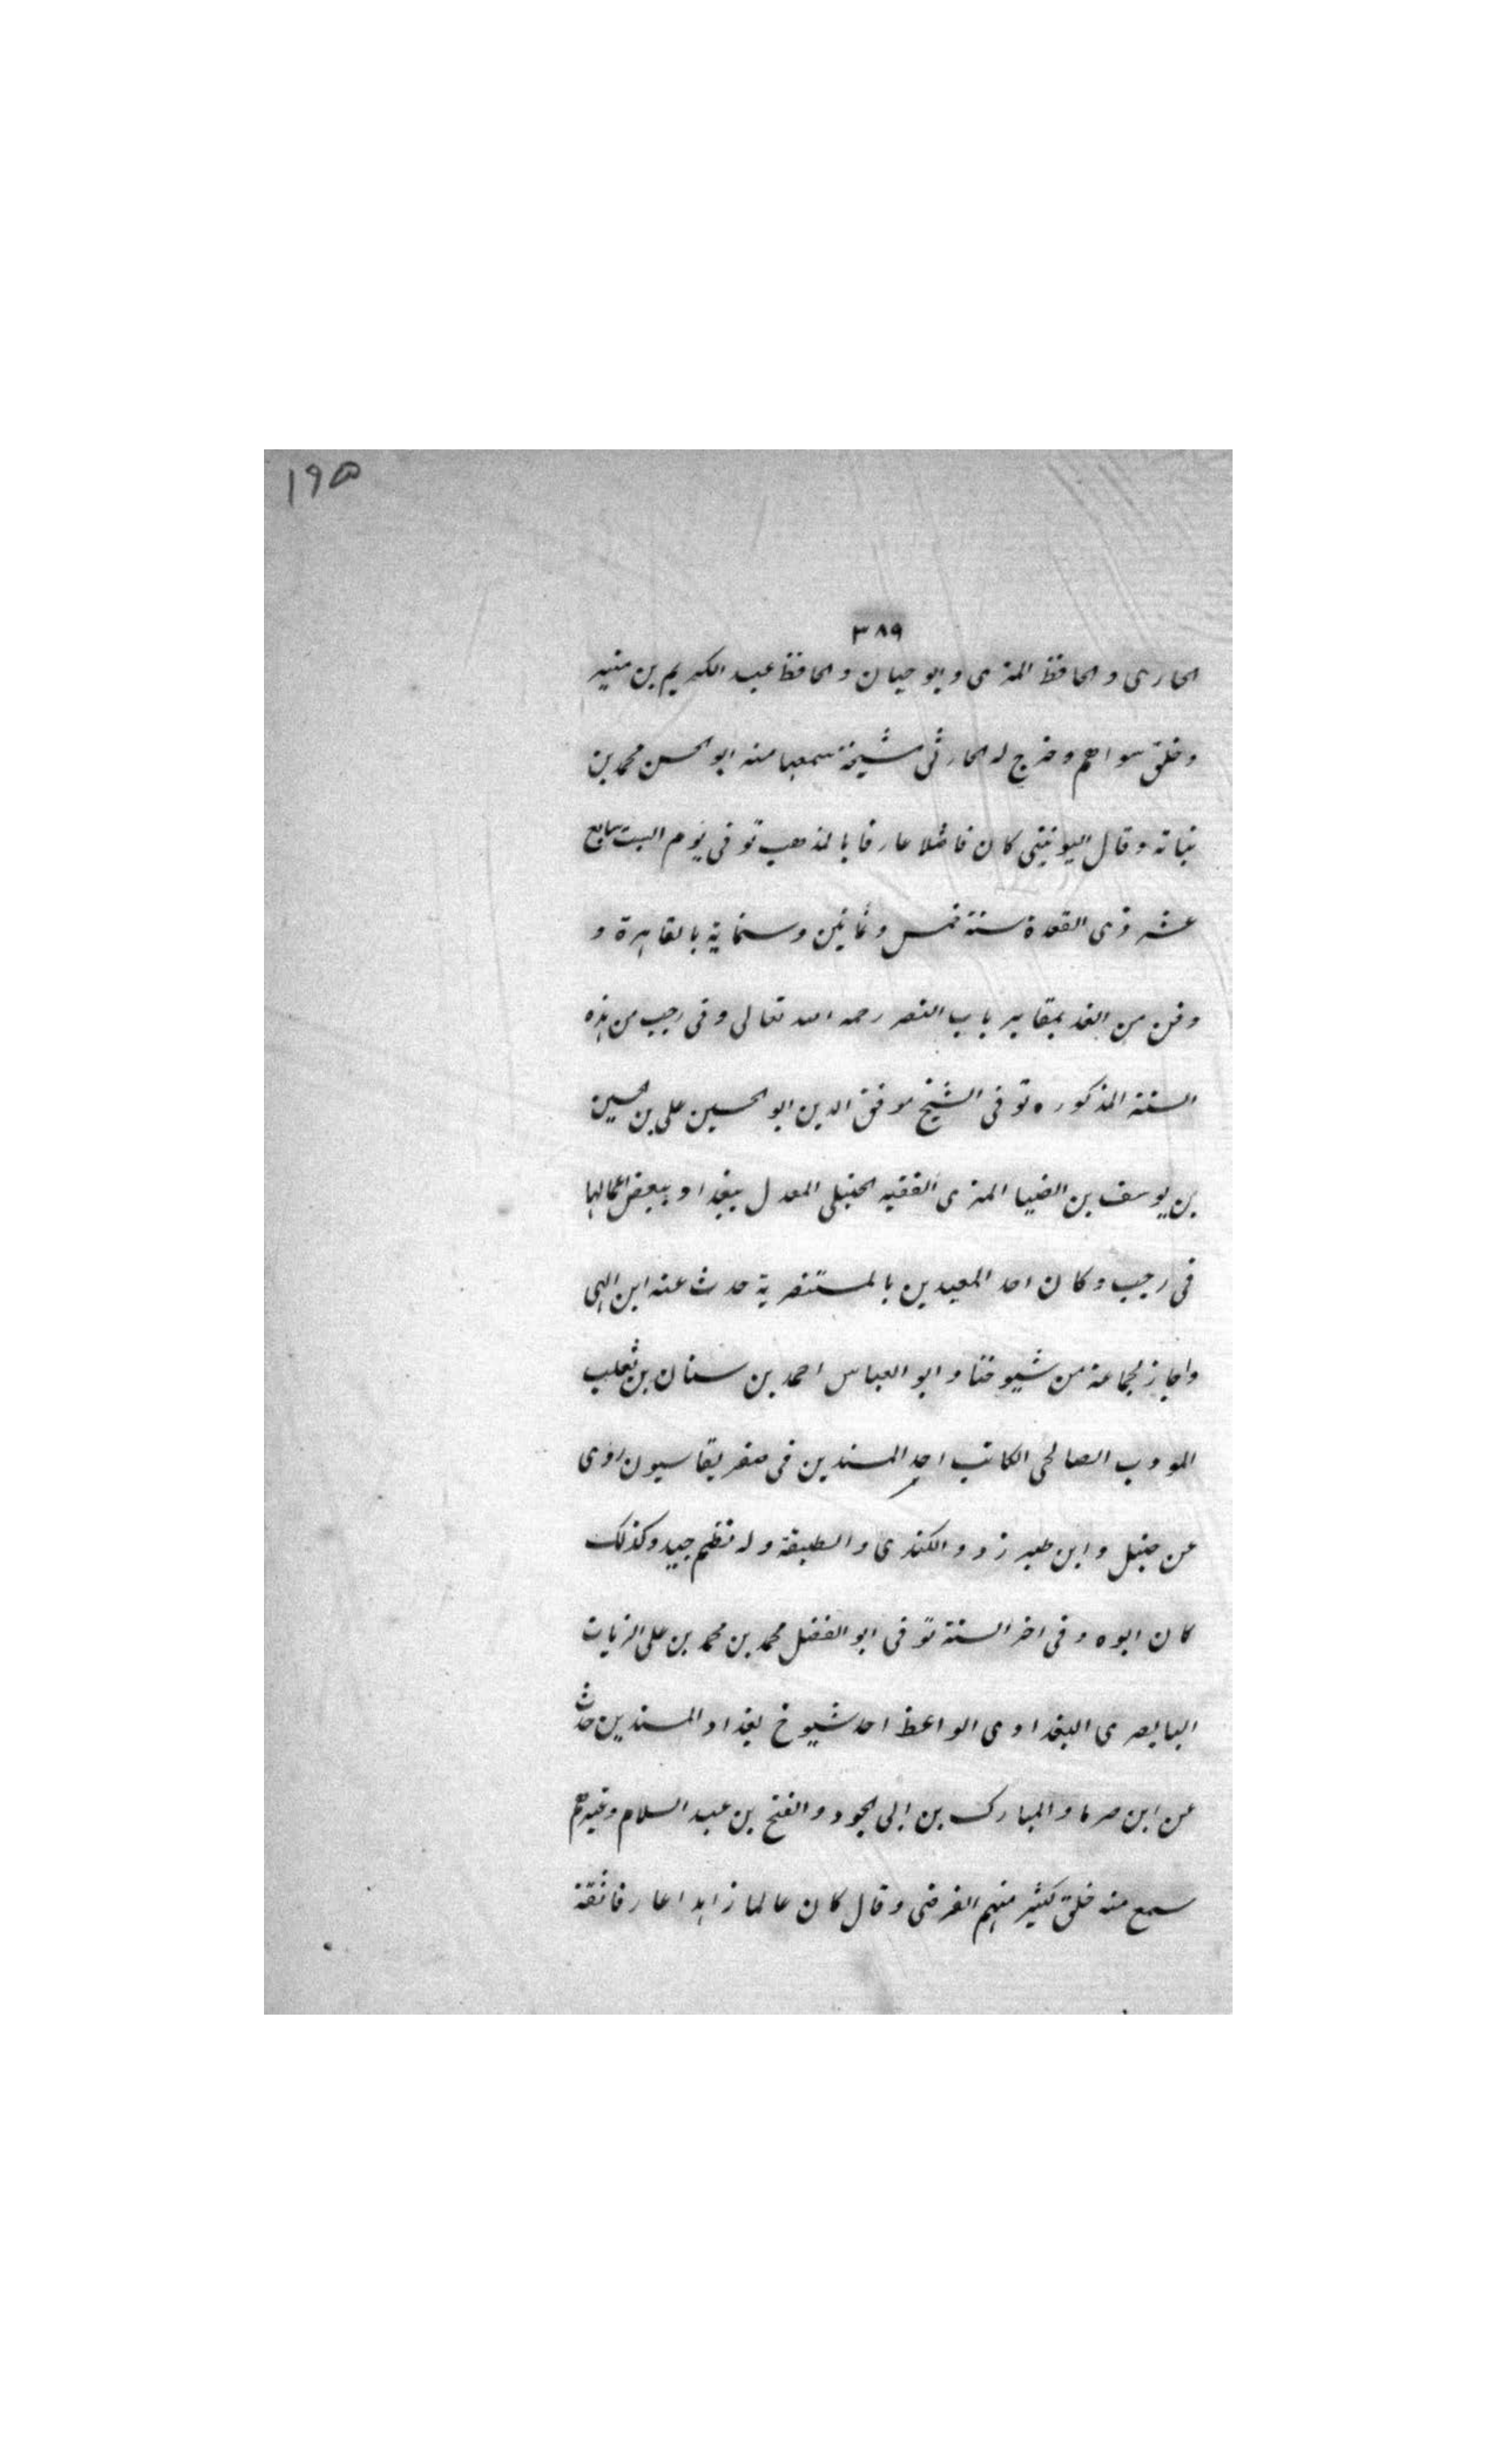 ١٩٥
٣٨٩
الحارثى والحافظ المزى وابو حيان والحافظ عبد الكريم بن منير
وخلق سواهم وخرج له الحارثى مشيخة سمعها منه ابو الحسن محمد بن
نباتة وقال اليونينى كان فاضلا عارفا بالمذهب توفى يوم السبت سابع
عشر ذى القعدة سنة خمس وثمانين وستماية بالقاهرة و
دفن من الغد بمقابر باب النصر رحمه الله تعالى وفى رجب من هذه
السنة المذكوره توفى الشيخ موفق الدين ابو الحسين على بن الحسين
بن يوسف بن الضيا المزى الفقيه الحنبلى المعدل ببغداد ببعض اعمالها
فى رجب وكان احد المعيدين بالمستنصرية حدث عنه ابن
واجاز لجماعة من شيوخنا وابو العباس احمد بن سنان بن ثعلب
المودب الصالحى الكاتب احد المسندين فى صفر بقاسيون روى
عن حنبل وابن طبرزد والكندى والطبقة وله نظم جيد وكذلك
كان ابوه وفى اخر السنة توفى ابو الفضل محمد بن محمد بن على الزيات
البابصرى البغدادى الواعظ احد شيوخ بغداد المسندين حدث
عن ابن صرما والمبارك بن ابى الجود والفتح بن عبد السلام وغيرهم
سمع منه خلق كثير منهم الفرضى وقال كان عالما زاهدا عارفا ثقة